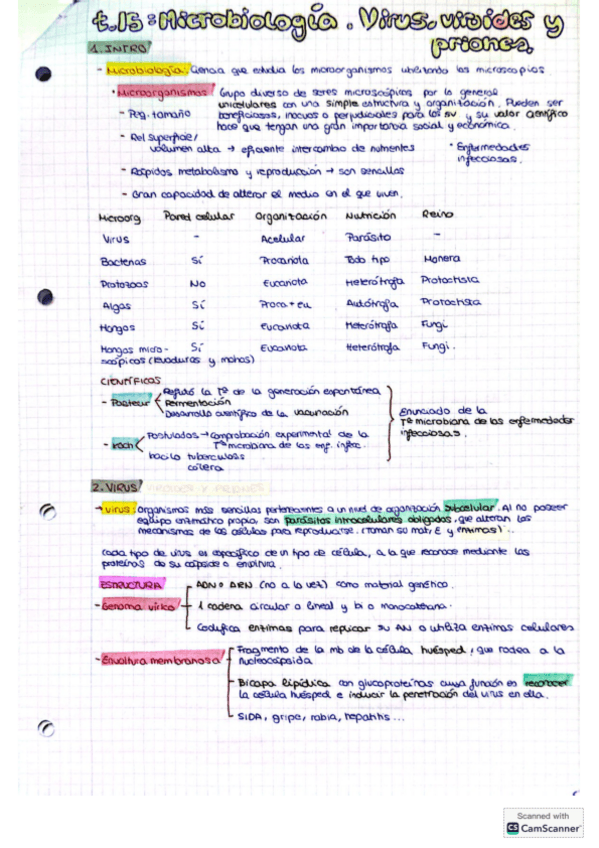 t.15: Microbiología. Virus, viroides y
priones.
1. INTRO
- Microbiología: Ciencia que estudia los microorganismos utilizando los microscopios.
• Microorganismos Grupo diverso de seres microscópicos por lo general
unicelulares con una simple estructura y organización. Pueden ser
- Peq. tamaño beneficiosos, inocuos o perjudiciales para los sv y su valor científico
hace que tengan una gran importancia social y económica.
- Rel superficie/
volumen alta → eficiente intercambio de nutrientes • Enfermedades
infecciosas.
- Rápidos metabolismo y reproducción → son sencillos
- Gran capacidad de alterar el medio en el que viven.
Microorg Pared celular Organización Nutrición Reino
Virus - Acelular Parásito -
Bacterias Sí Procariota Todo tipo Monera
Protozoos No Eucariota Heterótrofa Protoctista
Algas Sí Proca + eu Autótrofa Protoctista
Hongos Sí Eucariota Heterótrofa Fungi
Hongos micro- Sí Eucariota Heterótrofa Fungi.
scópicos (levaduras y mohos)
CIENTÍFICOS
- Pasteur Refutó la Tª de la generación espontánea
Fermentación
Desarrollo científico de la vacunación
Enunciado de la
Tª microbiana de las enfermedades
infecciosas.
- Koch Postulados → comprobación experimental de la
Tª microbiana de las enf. infec.
bacilo tuberculosis
cólera
2. VIRUS
→ Virus: Organismos más sencillos pertenecientes a un nivel de organización subcelular. Al no poseer
equipo enzimático propio, son parásitos intracelulares obligados, que alteran los
mecanismos de las células para reproducirse. (Toman su mat, E y enzimas)...
Cada tipo de virus es específico de un tipo de célula, a la que reconoce mediante las
proteínas de su cápside o envoltura.
ESTRUCTURA
- Genoma vírico
ADN o ARN (no a la vez) como material genético.
1 cadena circular o lineal y bi o monocatenaria.
Codifica enzimas para replicar su AN o utiliza enzimas celulares
- Envoltura membranosa
Fragmento de la mb de la célula huésped, que rodea a la
nucleocápsida
Bicapa lipídica con glucoproteínas cuya función es reconocer
la célula huésped e inducir la penetración del virus en ella.
SIDA, gripe, rabia, hepatitis...
Scanned with
CS CamScanner